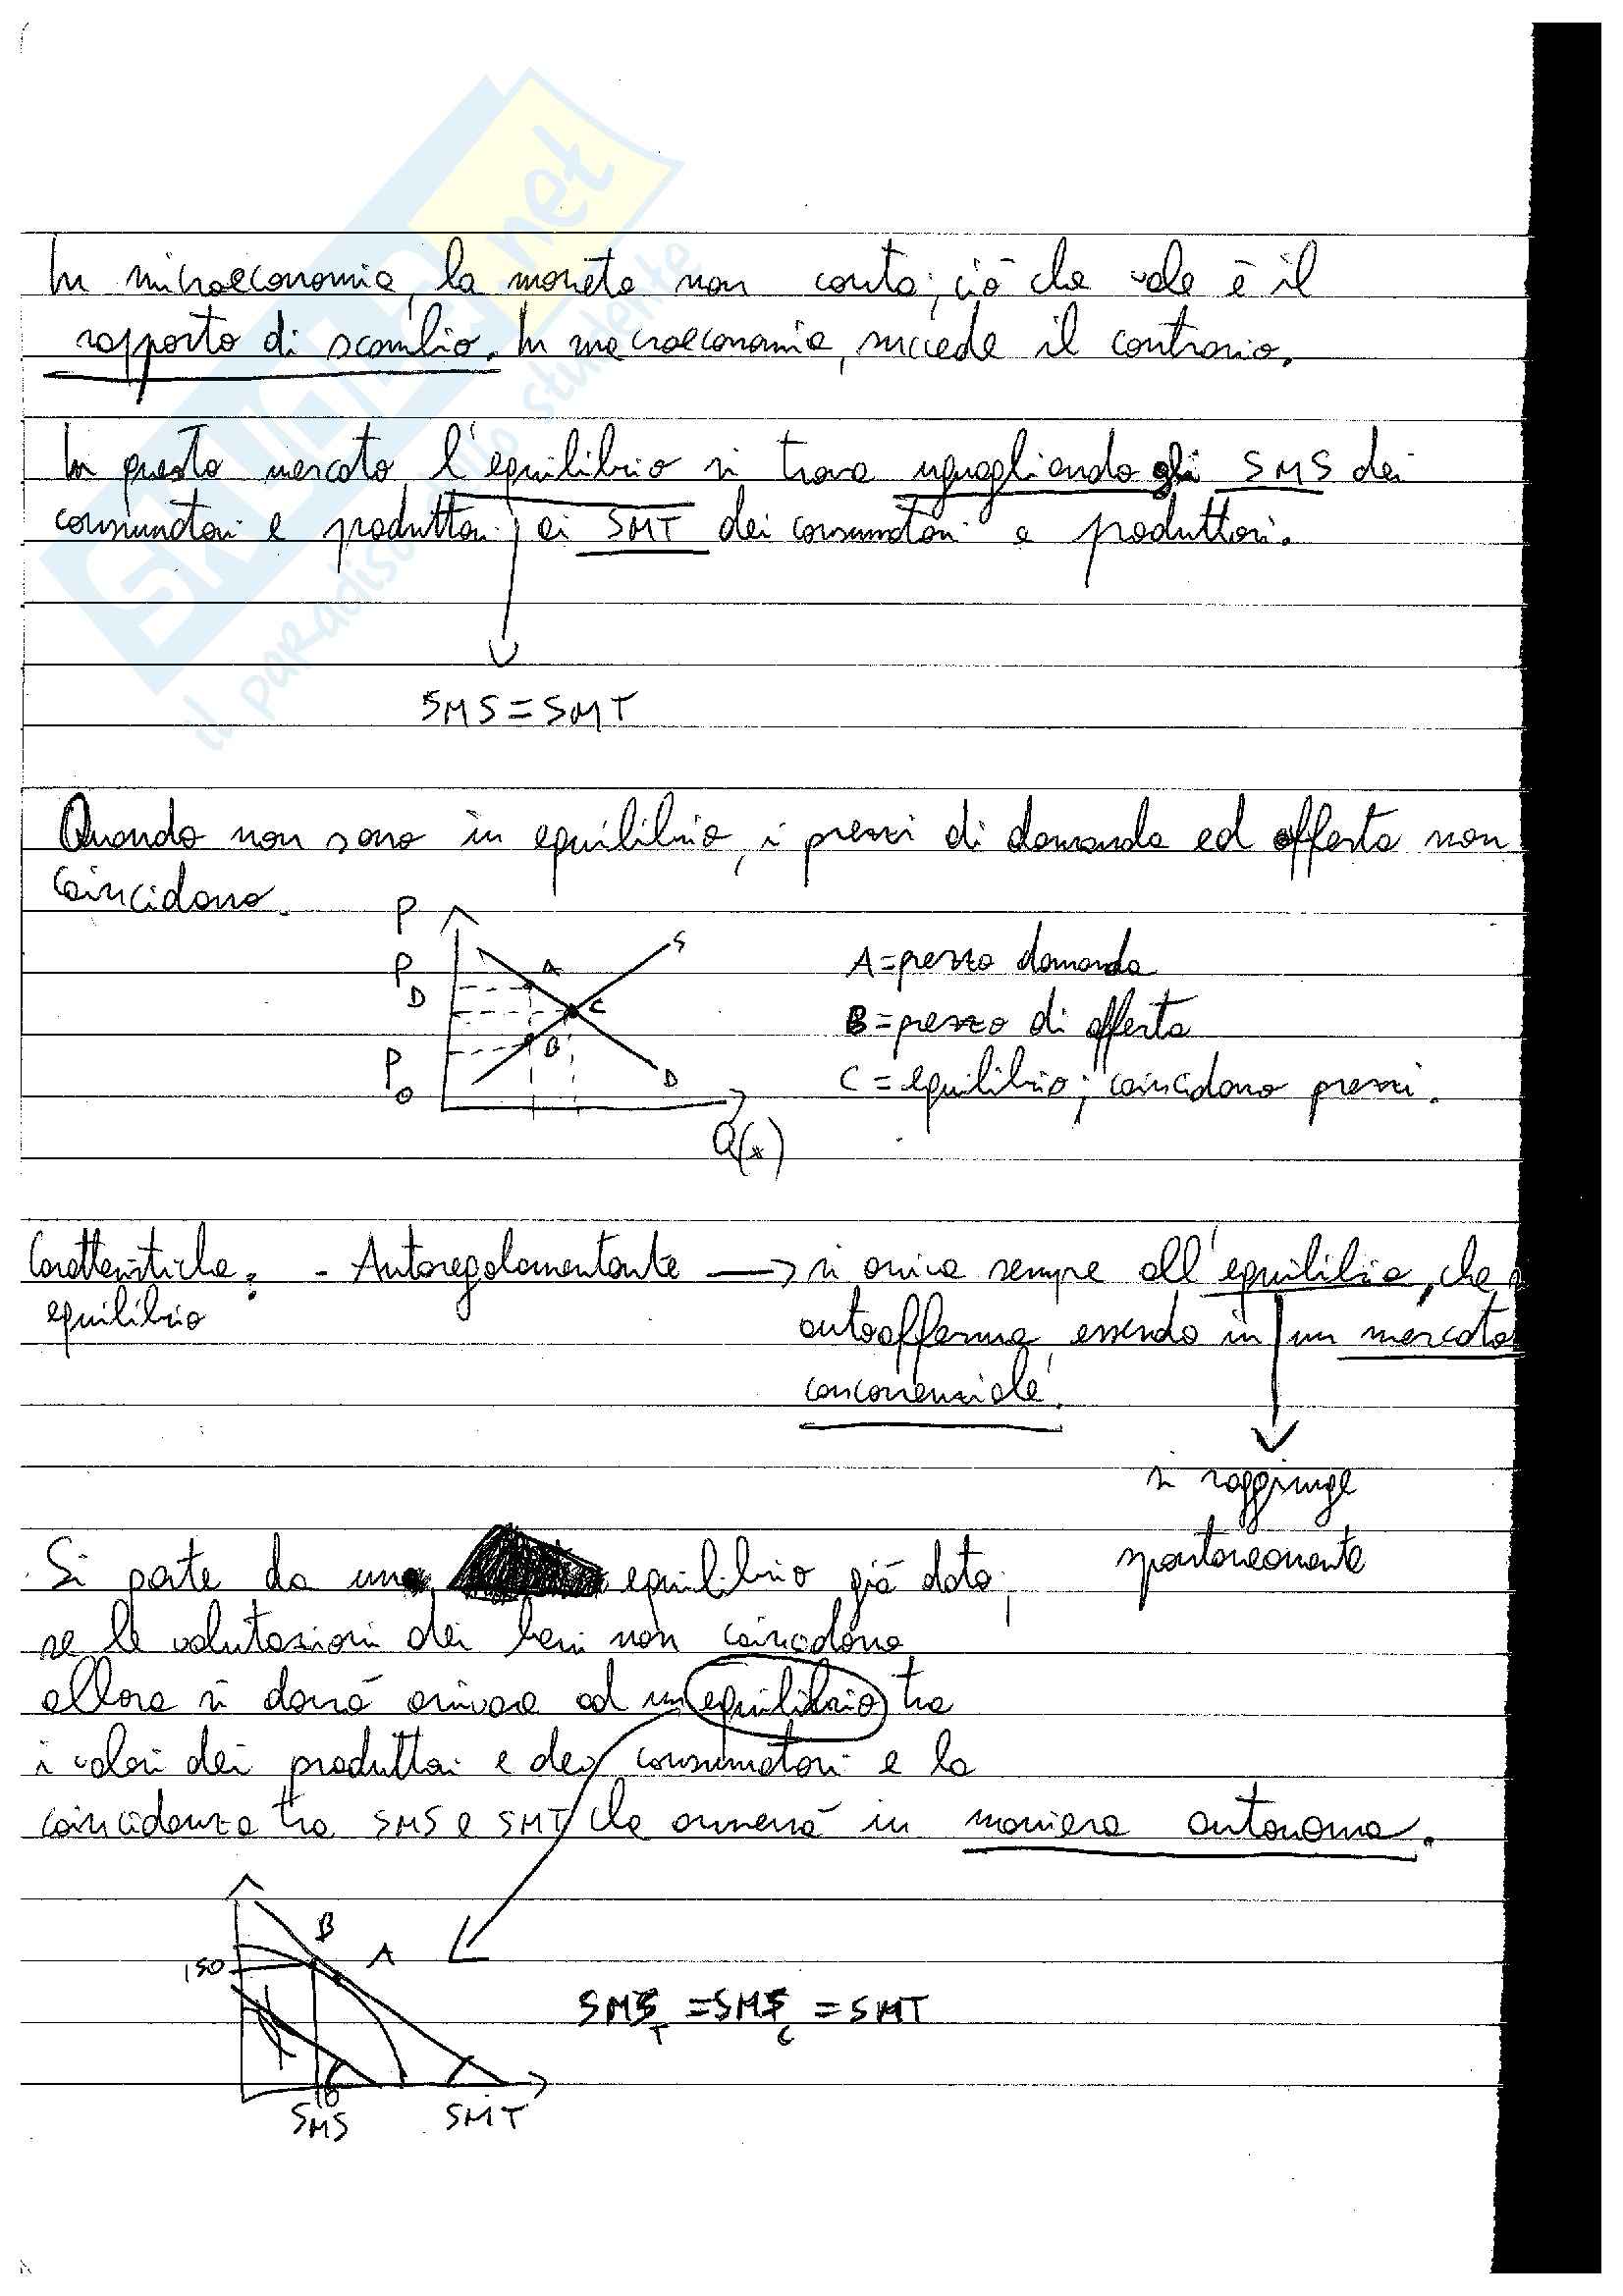 SKUOLA.net
il paradiso dello studente
In microeconomia, la moneta non conta; ciò che vale è il
rapporto di scambio. In macroeconomia, succede il contrario.
In questo mercato, l'equilibrio si trova uguagliando gli SMS dei
consumatori e produttori; ai SMT dei consumatori e produttori.
SMS=SMT
Quando non sono in equilibrio, i prezzi di domanda ed offerta non
coincidono.
P
P D
P O
A
B
C
S
D
Q(x)
A=prezzo domanda
B=prezzo di offerta
C=equilibrio; coincidono prezzi.
Caratteristiche: - Autoregolamentante → si arriva sempre all'equilibrio, che si
equilibrio
autoafferma, essendo in un mercato
concorrenziale.
si raggiunge
spontaneamente
Si parte da un equilibrio già dato;
se le valutazioni dei beni non coincidono
allora si dovrà arrivare ad un equilibrio tra
i valori dei produttori e dei consumatori e la
coincidenza tra SMS e SMT che avverrà in maniera autonoma.
B
A
150
SMS
SMT
SMS T = SMS C = SMT